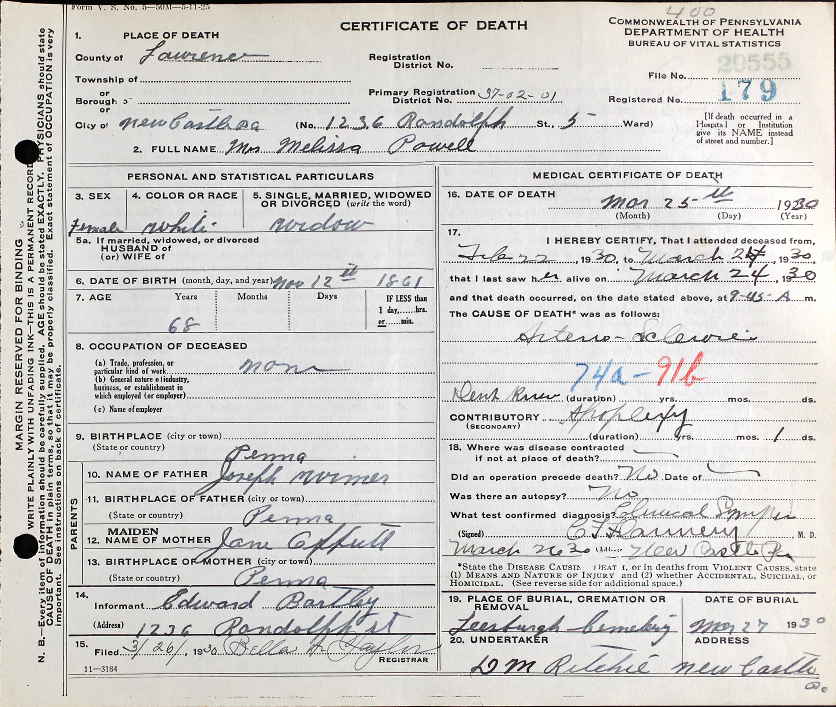 Form V. S. No. 5—50M—3-11-25
400
CERTIFICATE OF DEATH
COMMONWEALTH OF PENNSYLVANIA
DEPARTMENT OF HEALTH
BUREAU OF VITAL STATISTICS
1. PLACE OF DEATH
County of Lawrence
Registration District No.
29555
File No.
Township of
or
Borough
or
Primary Registration District No. 37-02-01
179
Registered No.
City of New Castle Pa (No. 1236 Randolph St., 5 Ward)
[If death occurred in a Hospital or Institution give its NAME instead of street and number.]
2. FULL NAME Mrs Melissa Powell
PERSONAL AND STATISTICAL PARTICULARS
3. SEX
Female
4. COLOR OR RACE
White
5. SINGLE, MARRIED, WIDOWED OR DIVORCED (write the word)
Widow
5a. If married, widowed, or divorced
HUSBAND of
(or) WIFE of
6. DATE OF BIRTH (month, day, and year) Nov 12 1861
7. AGE Years Months Days IF LESS than
1 day,....hrs.
or....min.
68
8. OCCUPATION OF DECEASED
(a) Trade, profession, or
particular kind of work none
(b) General nature of industry,
business, or establishment in
which employed (or employer)
(c) Name of employer
9. BIRTHPLACE (city or town)
(State or country) Penna
PARENTS
10. NAME OF FATHER Joseph Wimer
11. BIRTHPLACE OF FATHER (city or town)
(State or country) Penna
12. MAIDEN NAME OF MOTHER Jane Offutt
13. BIRTHPLACE OF MOTHER (city or town)
(State or country) Penna
14. Informant Edward Bartley
(Address) 1236 Randolph st
15. Filed 3/26/, 1930 Bella H Taylor
REGISTRAR
11—3184
MEDICAL CERTIFICATE OF DEATH
16. DATE OF DEATH Mar 25 th 1930
(Month) (Day) (Year)
17. I HEREBY CERTIFY, That I attended deceased from,
Feb 22, 1930, to March 24, 1930,
that I last saw her alive on March 24, 1930
and that death occurred, on the date stated above, at 9-45-A m.
The CAUSE OF DEATH* was as follows:
Arterio-Sclerosis
74a-91b
Dont Know (duration) yrs. mos. ds.
CONTRIBUTORY Apoplexy
(SECONDARY)
(duration) yrs. mos. 1 ds.
18. Where was disease contracted
if not at place of death?
Did an operation precede death? No Date of
Was there an autopsy? No
What test confirmed diagnosis? Clinical
(Signed) C F Flannery M. D.
March 26 30 New Castle Pa
*State the DISEASE CAUSING DEATH, or in deaths from VIOLENT CAUSES, state
(1) MEANS AND NATURE OF INJURY and (2) whether ACCIDENTAL, SUICIDAL, or
HOMICIDAL. (See reverse side for additional space.)
19. PLACE OF BURIAL, CREMATION OR REMOVAL
Leesburgh Cemetery
DATE OF BURIAL
Mar 27 1930
20. UNDERTAKER
D M Ritchie
ADDRESS
New Castle
MARGIN RESERVED FOR BINDING
WRITE PLAINLY WITH UNFADING INK—THIS IS A PERMANENT RECORD
N. B.—Every item of information should be carefully supplied. AGE should be stated EXACTLY. PHYSICIANS should state
CAUSE OF DEATH in plain terms, so that it may be properly classified. Exact statement of OCCUPATION is very
important. See instructions on back of certificate.